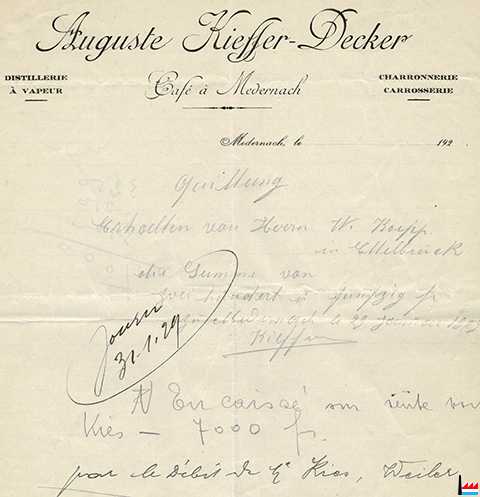 Auguste Kieffer-Decker
DISTILLERIE
À VAPEUR
Café à Medernach
CHARRONNERIE
CARROSSERIE
Medernach, le 192
Quittung
Erhalten von Herrn W. Koepp
in Ettelbrück
die Summe von
zwei hundert u fünfzig fr
29 Januar
Kieffer
Journ
31.1.29
Encaissé
Kies — 7000 fr.
par le Débit de Kies, Weiler